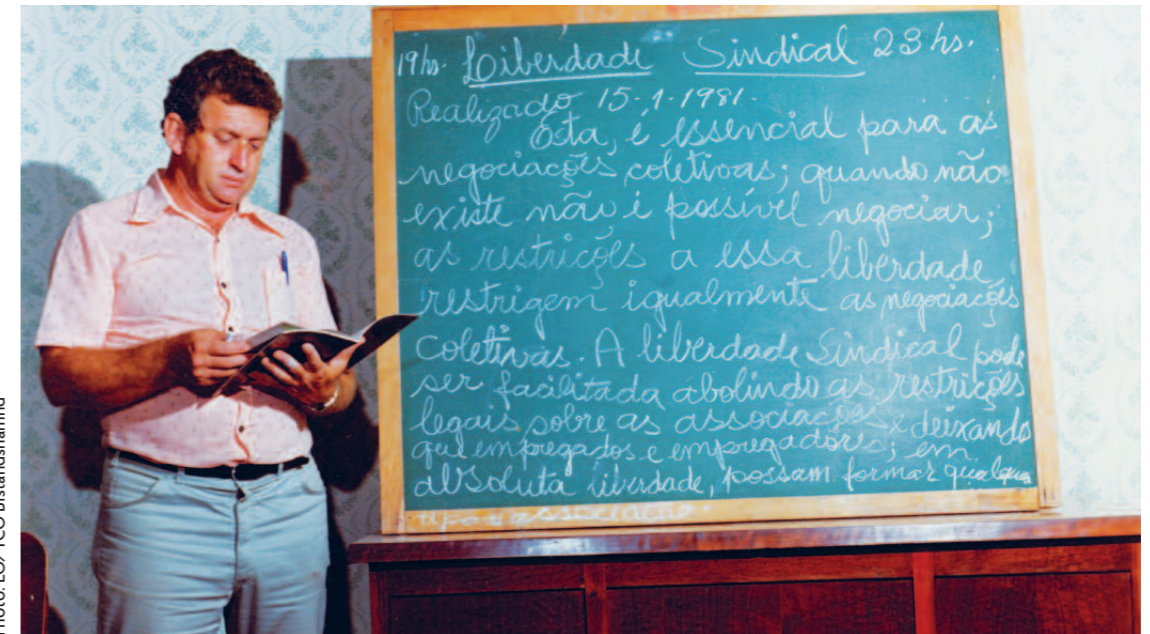 19hs. Loiberdade Sindical 23hs.
Realizado 15-1-1981.
Esta, é essencial para as
negociações coletivas; quando não
existe não é possível negociar;
as restrições a essa liberdade
restrigem igualmente as negociações
coletivas. A liberdade Sindical pode
ser facilitada abolindo as restrições
legais sobre as associações x deixando
que empregados e empregadores; em
absoluta liberdade, possam formar qualquer
tipo de associação.
Photo: LO/TCO Biståndsnämnd